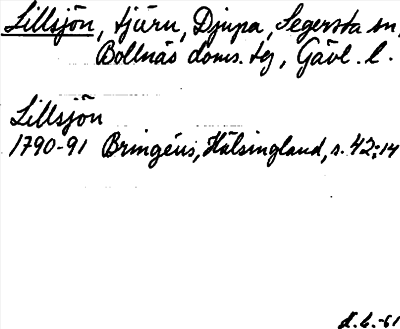 Lillsjön, tjärn, Djupa, Segersta sn,
Bollnäs doms. tg, Gävl. l.
Lillsjön
1790-91 Bringéus, Hälsingland, s. 42:14
-61